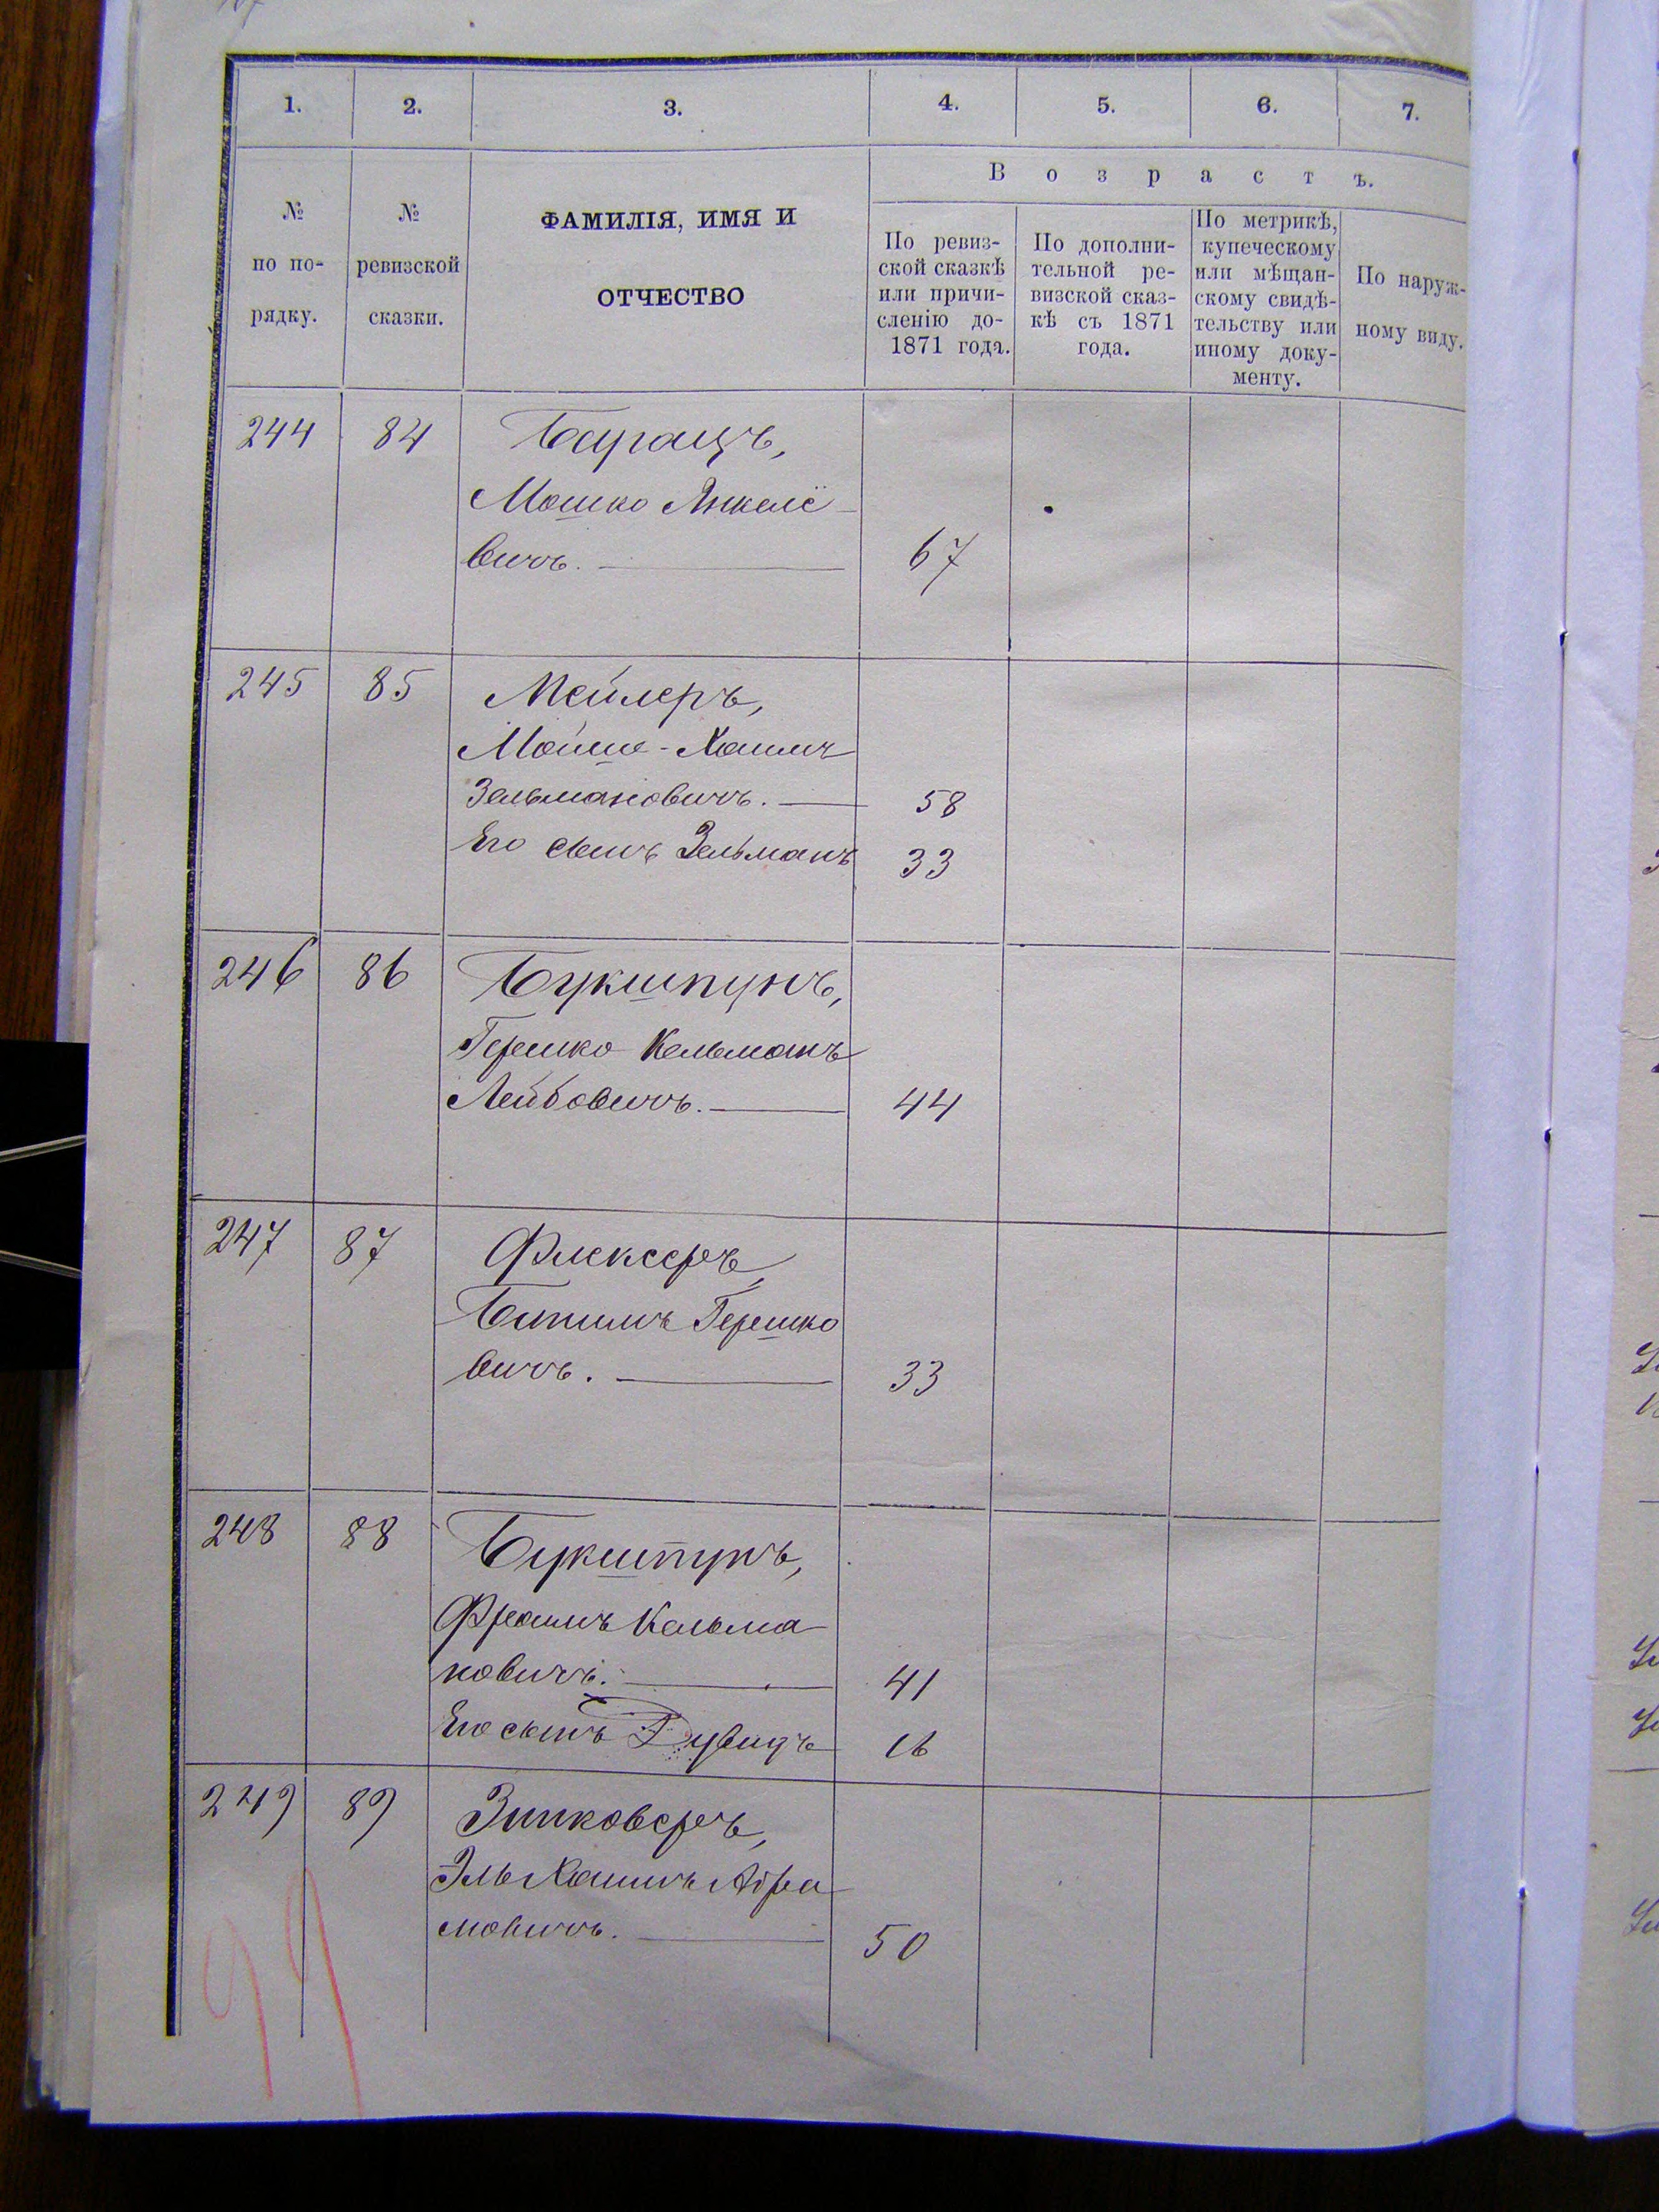 1. 2. 3. 4. 5. 6. 7.
№ по по-рядку.
№ ревизской сказки.
ФАМИЛІЯ, ИМЯ И
ОТЧЕСТВО
Возрастъ.
По ревиз-
ской сказкѣ
или причи-
сленію до-
1871 года.
По дополни-
тельной ре-
визской сказ-
кѣ съ 1871
года.
По метрикѣ,
купеческому
или мѣщан-
скому свидѣ-
тельству или
иному доку-
менту.
По наруж-
ному виду.
244 84 Барацъ,
Мошко Янкеле-
вичъ. 67
245 85 Мейлеръ,
Мойше-Хаимъ
Зельмановичъ. 58
Его сынъ Зельманъ 33
246 86 Букшпунъ,
Гершко Кельманъ
Лейбовичъ. 44
247 87 Флексеръ,
Бениимъ Гершко
вичъ. 33
248 88 Букшпунъ,
Фроимъ Кельма
новичъ. 41
Его сынъ Дувидъ 16
249 89 Зинковеръ,
Эль Хаимъ Абра
мовичъ. 50
99